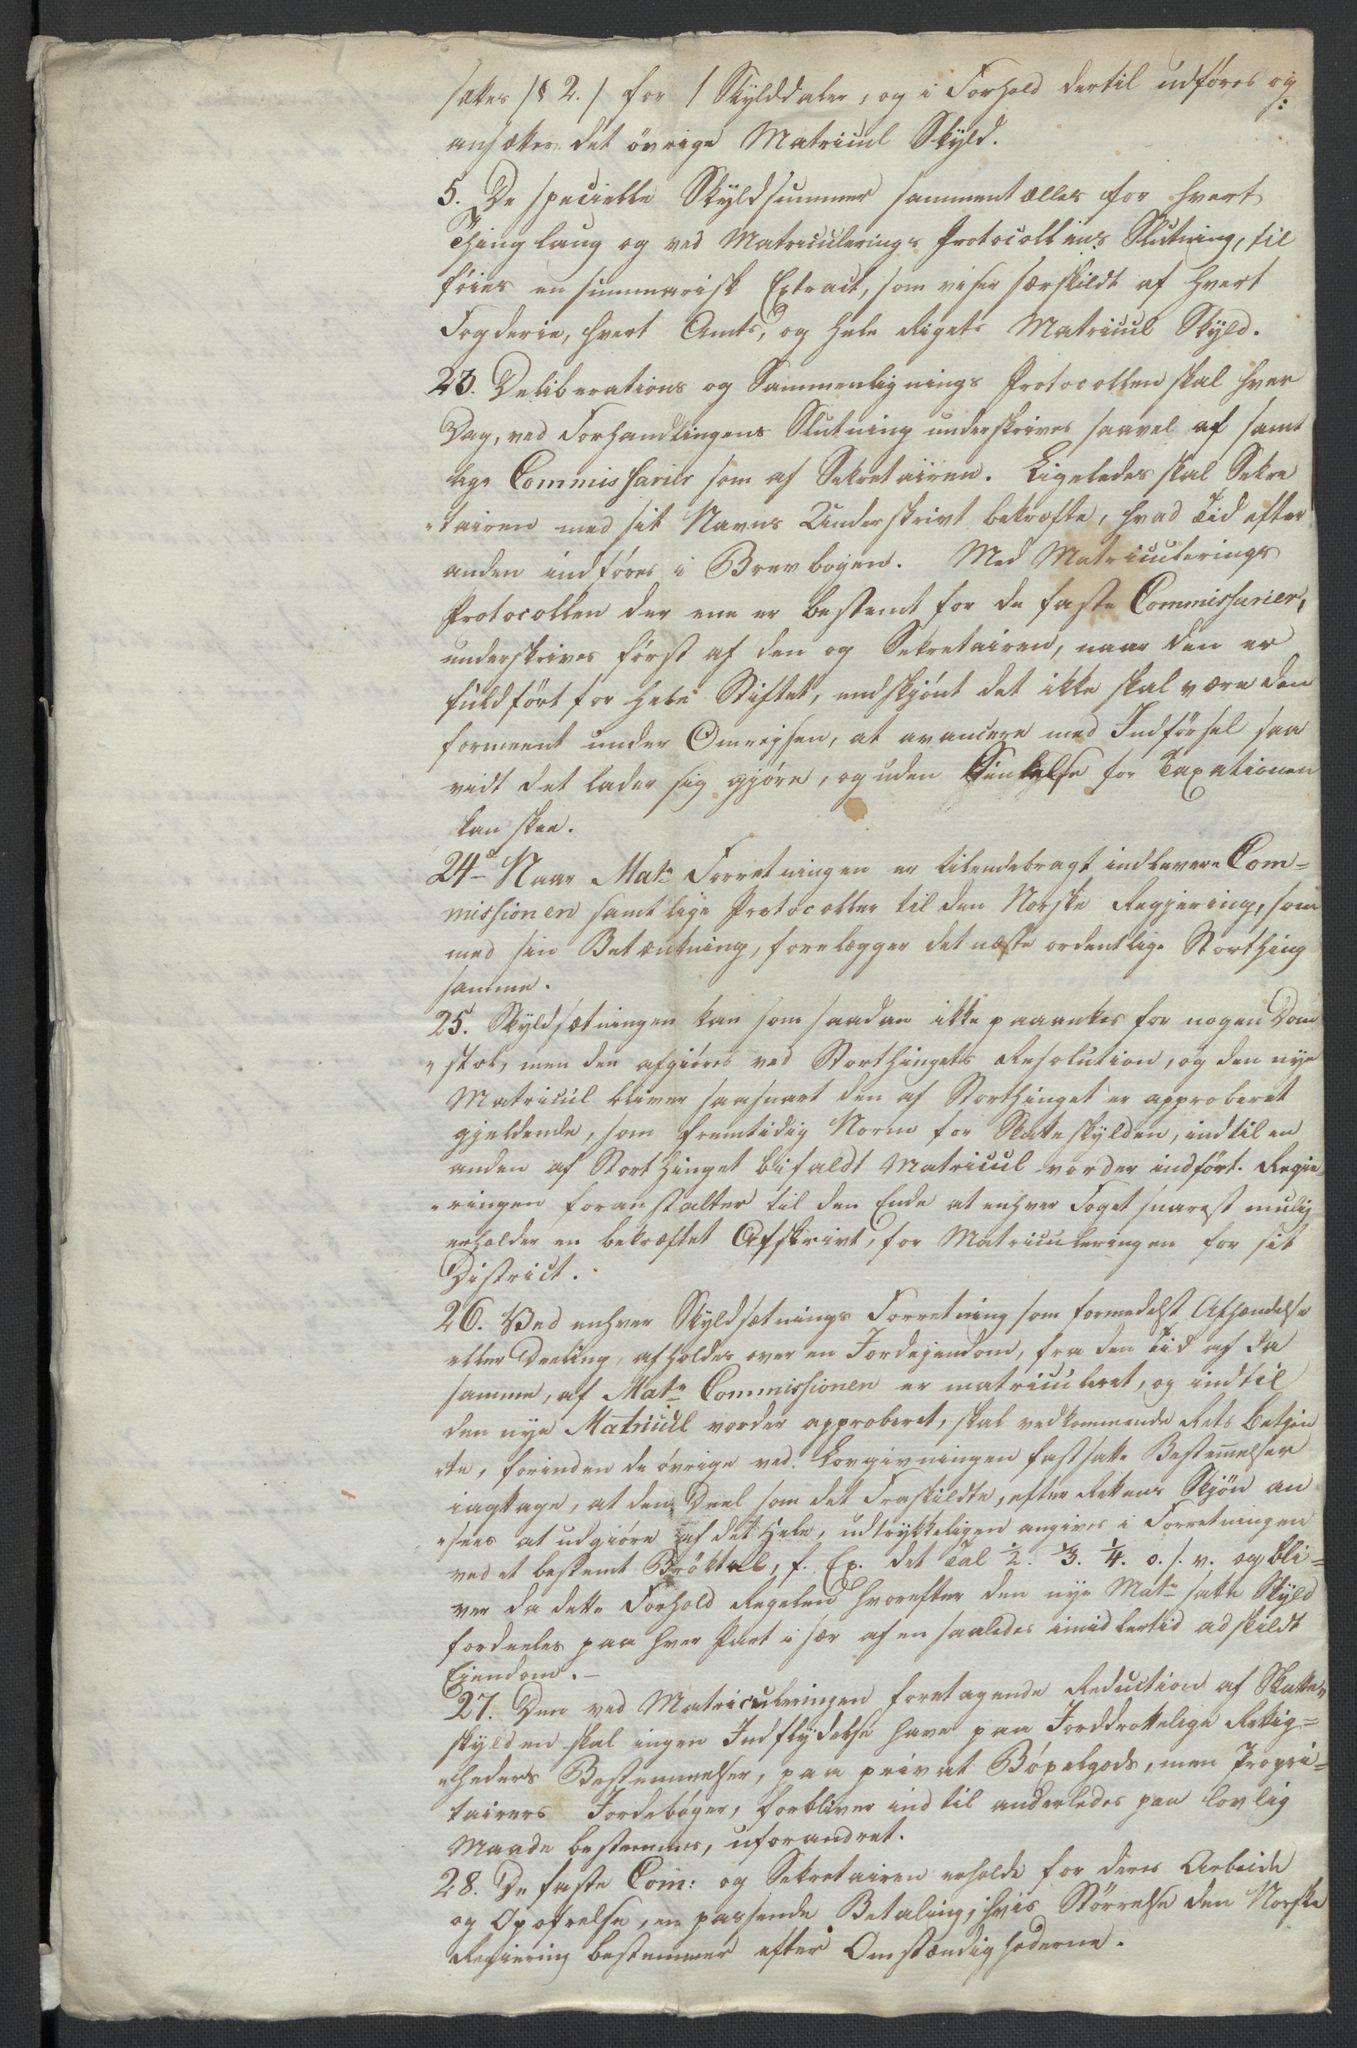 sættes /§ 2./ for 1 Skylddaler, og i Forhold dertil udføres og
ansættes det övrige Matricul Skyld.
5. De specielle Skyldsummer sammentælles for hvert
Thinglaug og ved Matriculerings Protocollens Slutning, til
föies en summarisk Extract, som viser særskildt af hvert
Fogderie, hvert Amts, og hele Rigets Matricul Skyld.
23. Deliberations og Sammenlignings Protocollen skal hver
Dag, ved Forhandlingens Slutning underskrives saavel af samt
lige Commissarier som af Sekretairen. Ligeledes skal Sekre
"tairen med sit Navns Underskrivt bekræfte, hvad Tid efter
anden indføres i Brevbogen. Med Matriculerings
Protocollen der ene er bestemt for de faste Commissarier,
underskrives først af den og Sekretairen, naar den er
fuldført for hele Stiftet, endskjönt det ikke skal være den
formeent under Omreisen, at avancere med Indförsel saa
vidt det lader sig gjöre, og uden Sinkelse for Taxationen
kan skee.
24d Naar Mat: Forretningen er tilendebragt indlevere Com-
missionen samtlige Protocoller til den Norske Regjering, som
med sin Betænkning, forelægger det næste ordentlige Storthing
samme.
25. Skyldsætningen kan som saadan ikke paaankes for nogen Dom
"stol, men den afgiöres ved Storthingets Resolution, og den nye
Matricul bliver saasnart den af Storthinget er approberet
gjeldende, som fremtidig Norm for Skatteskylden, indtil en
anden af Storthinget bifaldt Matricul vorder indført. Regie
"ringen foranstalter til den Ende at enhver Foget snarest mulig
erholder en bekræftet Afskrivt, for Matriculeringen for sit
District.
26. Ved enhver Skyldsætnings Forretning som formedelst Afhændelse
eller Deeling, afholdes over en Jordejendom, fra den Tid af da
samme, af Mat: Commissionen er matriculeret, og indtil
den nye Matricul vorder approberet, skal vedkommende Rets Betjen
"te, forinden de övrige ved Lovgivningen fastsatte Bestemelser
iagttage, at den Deel som det Fraskildte, efter Rettens Skjön an
"sees at udgiöre af det Hele, udtrykkeligen angives i Forretningen
ved et bestemt Bröktal, f. Ex. det Tal ½. ⅓. ¼. o. s. v. og bli-
ver da dette Forhold Regelen hvorefter den nye Mat: satte Skyld
fordeeles paa hver Part i sær af en saaledes imidlertid adskildt
Eiendom. -
27. Den ved Matriculeringen foretagende Reduction af Skatte-
skylden skal ingen Indflydelse have paa Jorddrottelige Rettig-
"heders Bestemmelser, paa privat Böxelgods, men Propri-
tairers Jordebøger, forbliver indtil anderledes paa lovlig
Maade bestemmes, uforandret.
28. De faste Com: og Sekretairen erholde for deres Arbeide
og Opofrelse, en passende Betaling, hvis Størrelse den Norske
Regiering bestemmer efter Omstændighederne.